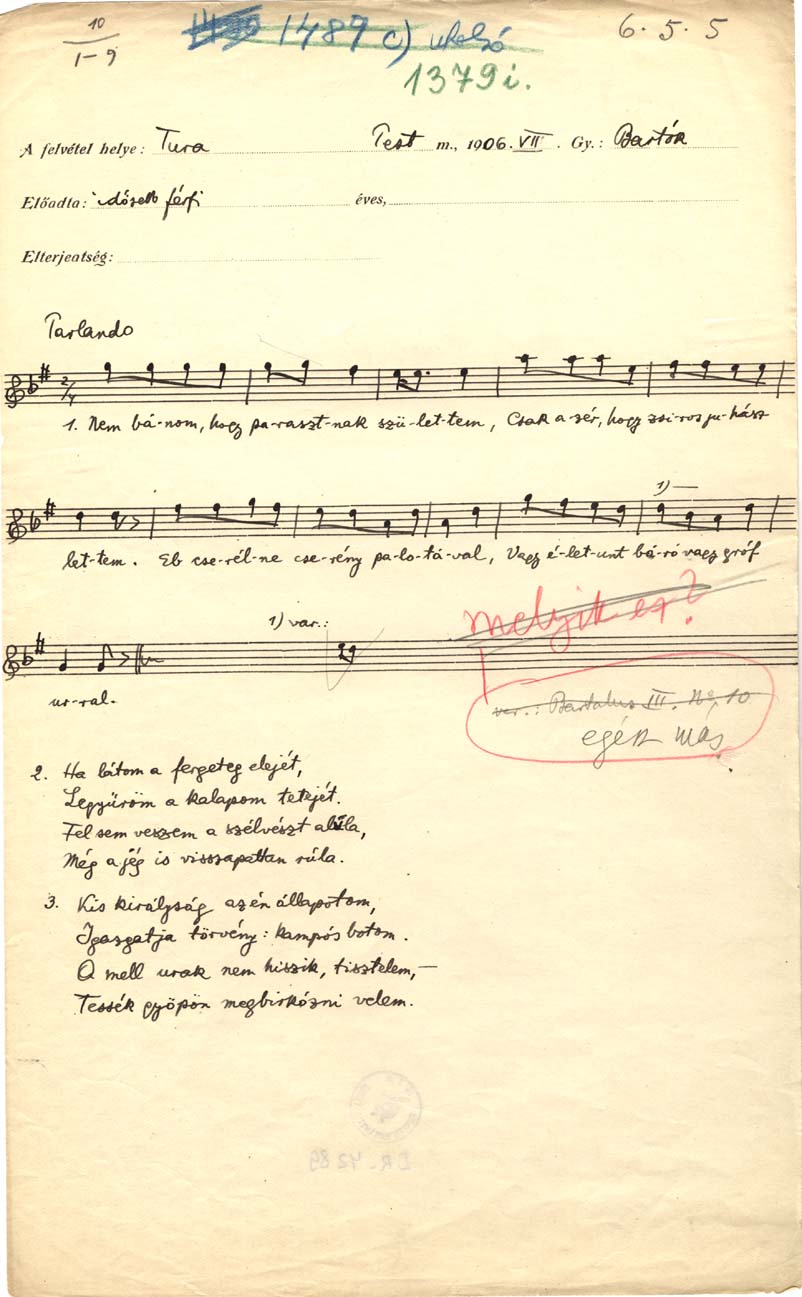 10
1-9
1487 c) utolsó
6. 5. 5
1379 i.
A felvétel helye: Tura Pest m., 1906. VII. Gy.: Bartók
Előadta: idősebb férfi éves,
Elterjeatség:
Parlando
2/4
1. Nem bá-nom, hogy pa-raszt-nak szü-let-tem, Csak a-zér, hogy zsi-ros ju-hász
1)
let-tem. Eb cse-rél-ne cse-rény pa-lo-tá-val, Vagy é-let-unt bá-ró vagy gróf
1) var.:
melyik ez?
ur-ral.
var.: Bartalus III. No. 10
egész más.
2. Ha látom a fergeteg elejét,
Legyűröm a kalapom tetejét.
Fel sem veszem a szélvészt alúla,
Még a jég is visszapattan rúla.
3. Kis királyság az én állapotom,
Igazgatja törvény: kampós botom.
A mell urak nem hiszik, tisztelem,—
Tessék gyöpön megbirkózni velem.
DR. 4289